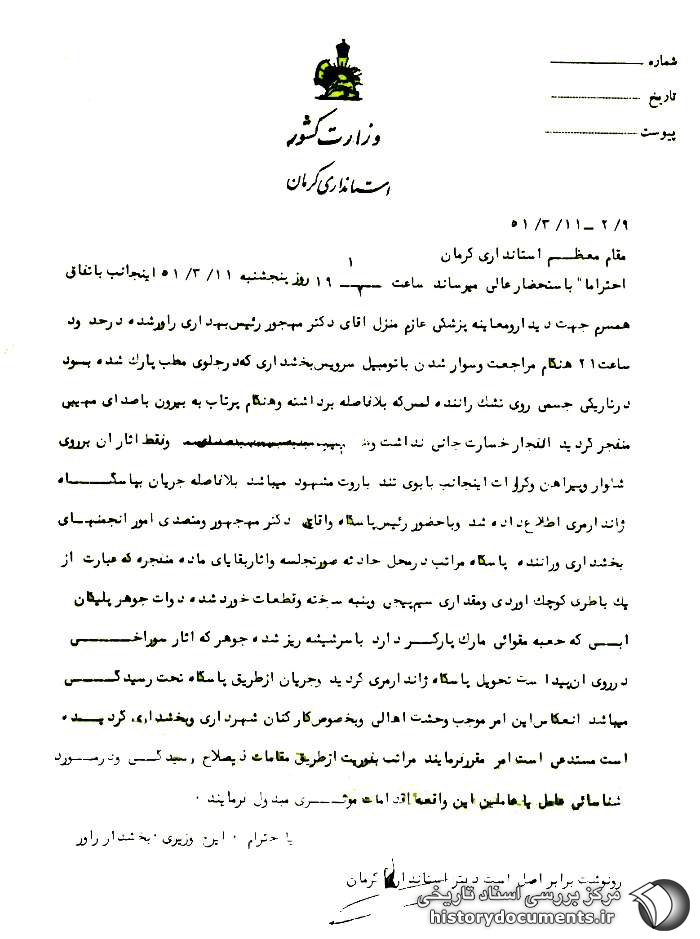 شماره
تاریخ
پیوست
وزارت کشور
استانداری کرمان
۲/۹ – ۵۱/۳/۱۱
مقام معظم استانداری کرمان
احتراما" باستحضار عالی میرساند ساعت ۱۹ روز پنجشنبه ۵۱/۳/۱۱ اینجانب باتفاق
همسرم جهت دیدارومعاینه پزشکی عازم منزل اقای دکتر مهجور رئیس بهداری راورشده درحدود
ساعت ۲۱ هنگام مراجعت وسوار شدن باتومبیل سرویس بخشداری که درجلوی مطب پارك شده بود
درتاریکی جسمی روی تشك راننده لمس که بلافاصله برداشته وهنگام پرتاب به بیرون باصدای مهیبی
منفجر گردید انفجار خسارت جانی نداشت وفقط اثار ان برروی
شلوار وپیراهن وکراوات اینجانب بابوی تند باروت مشهود میباشد بلافاصله جریان بپاسگاه
ژاندارمری اطلاع داده شد وباحضور رئیس پاسگاه واقای دکتر مهجور ومتصدی امور انجمنهای
بخشداری وراننده پاسگاه مراتب درمحل حادثه صورتجلسه واثاربقایای ماده منفجره که عبارت از
یك باطری کوچك اوردی ومقداری سیم پیچی وپنبه سخته وقطعات خورد شده دوات جوهر پلیکان
ابی که جعبه مقوائی مارك پارکر دارد باسرشیشه ریز شده جوهر که اثار سوراخی
درروی ان پیدا ست تحویل پاسگاه ژاندارمری گردید وجریان ازطریق پاسگاه تحت رسیدگی
میباشد انعکاس این امر موجب وحشت اهالی وبخصوص کارکنان شهرداری وبخشداری گردیده
است مستدعی است امر مقررفرمایند مراتب بفوریت ازطریق مقامات ذیصلاح رسیدگی ودرمورد
شناسائی عامل یاعاملین این واقعه اقدامات موثری مبذول فرمایند ۰
با احترام ۰ وزیری ۰ بخشدار راور
رونوشت برابر اصل است دفتر استانداری کرمان
مرکز بررسی اسناد تاریخی
historydocuments.ir